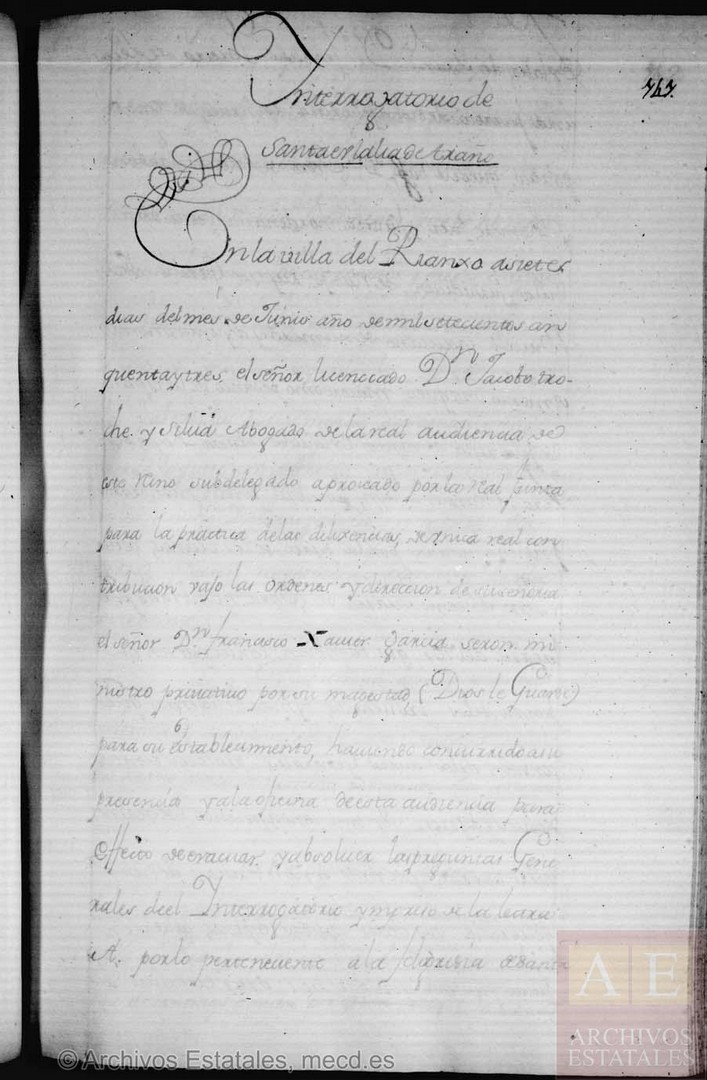 767.
Interrogatorio de
Santa eulalia de Araño
En la villa del Rianxo a siete
dias del mes de Junio año de mil setecientos cin
quenta y tres, el señor licenciado Dn. Jacobo tro-
che y Silva Abogado de la real audiencia de
este reino subdelegado aprovado por la real junta
para la practica de las dilixencias, de unica real con
tribucion vajo las ordenes y direccion de su señoria
el señor Dn. francisco Xavier garcia, seron mi
nistro privativo por su magestad, (Dios le Guarde)
para su establecimiento, haviendo concurrido a su
presencia y a la oficina de esta audiencia para
effecto de evacuar y absolver las preguntas Gene
rales del Interrogatorio ympreso de la letra
A. por lo perteneciente a la feligresia de santa
AE
ARCHIVOS
ESTATALES
© Archivos Estatales, mecd.es